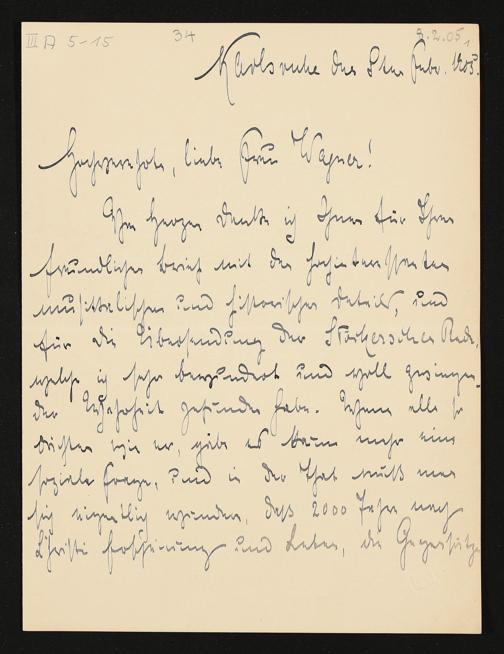 III A 5-15 34 8.2.05
Karlsruhe den 8ten Febr. 1905.
Hochverehrte, liebe Frau Wagner!
Von Herzen danke ich Ihnen für Ihren
freundlichen Brief mit den hochinteressanten
musikalischen und historischen Details, und
für die Übersendung der Stöcker'schen Rede,
welche ich sehr bewundert und voll
der Wahrheit gefunden habe. Wenn alle so
dächten wie er, gäbe es kaum mehr eine
soziale Frage, und in der That muß man
sich wundern, daß 2000 Jahre nach
Christi Erscheinung und Leben, die Gegensätze